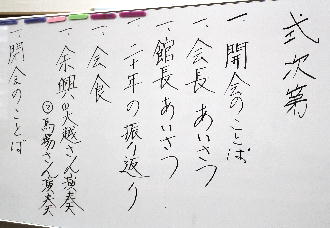 式次第
一、開会のことば
一、会長あいさつ
一、館長あいさつ
一、二十年の振り返り
一、会食
一、余興①火越さん演奏
②馬場さん演奏
一、閉会のことば